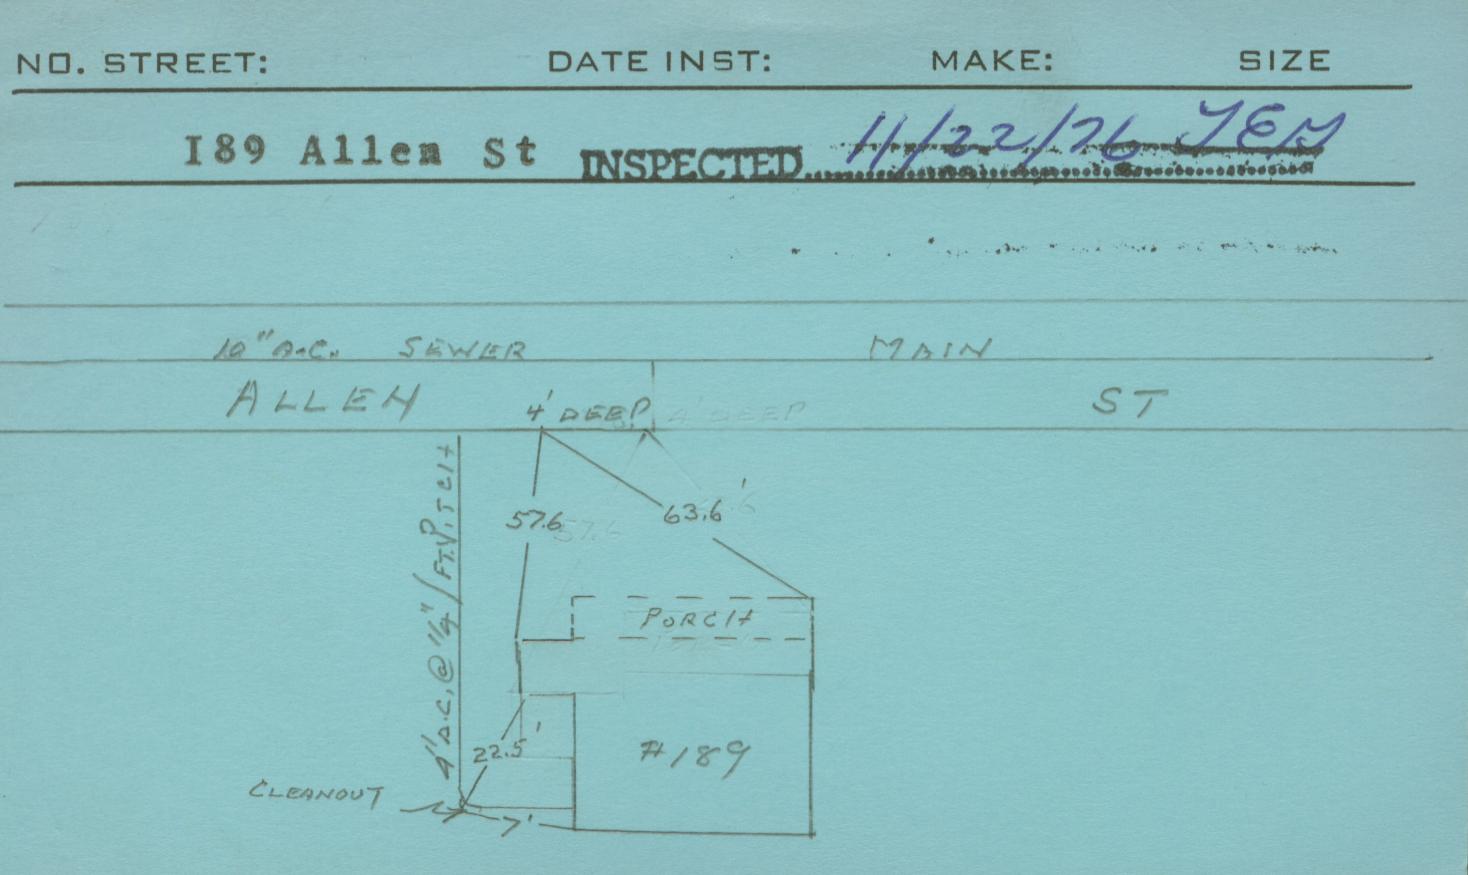 NO. STREET: DATE INST: MAKE: SIZE
I89 Allen St INSPECTED 11/22/76
10" A.C. SEWER MAIN
ALLEN ST
4' DEEP 4' DEEP
57.6 57.6 63.6'
4" A.C. @ 1/4"/FT. PITCH
PORCH
22.5' #189
CLEANOUT
7'